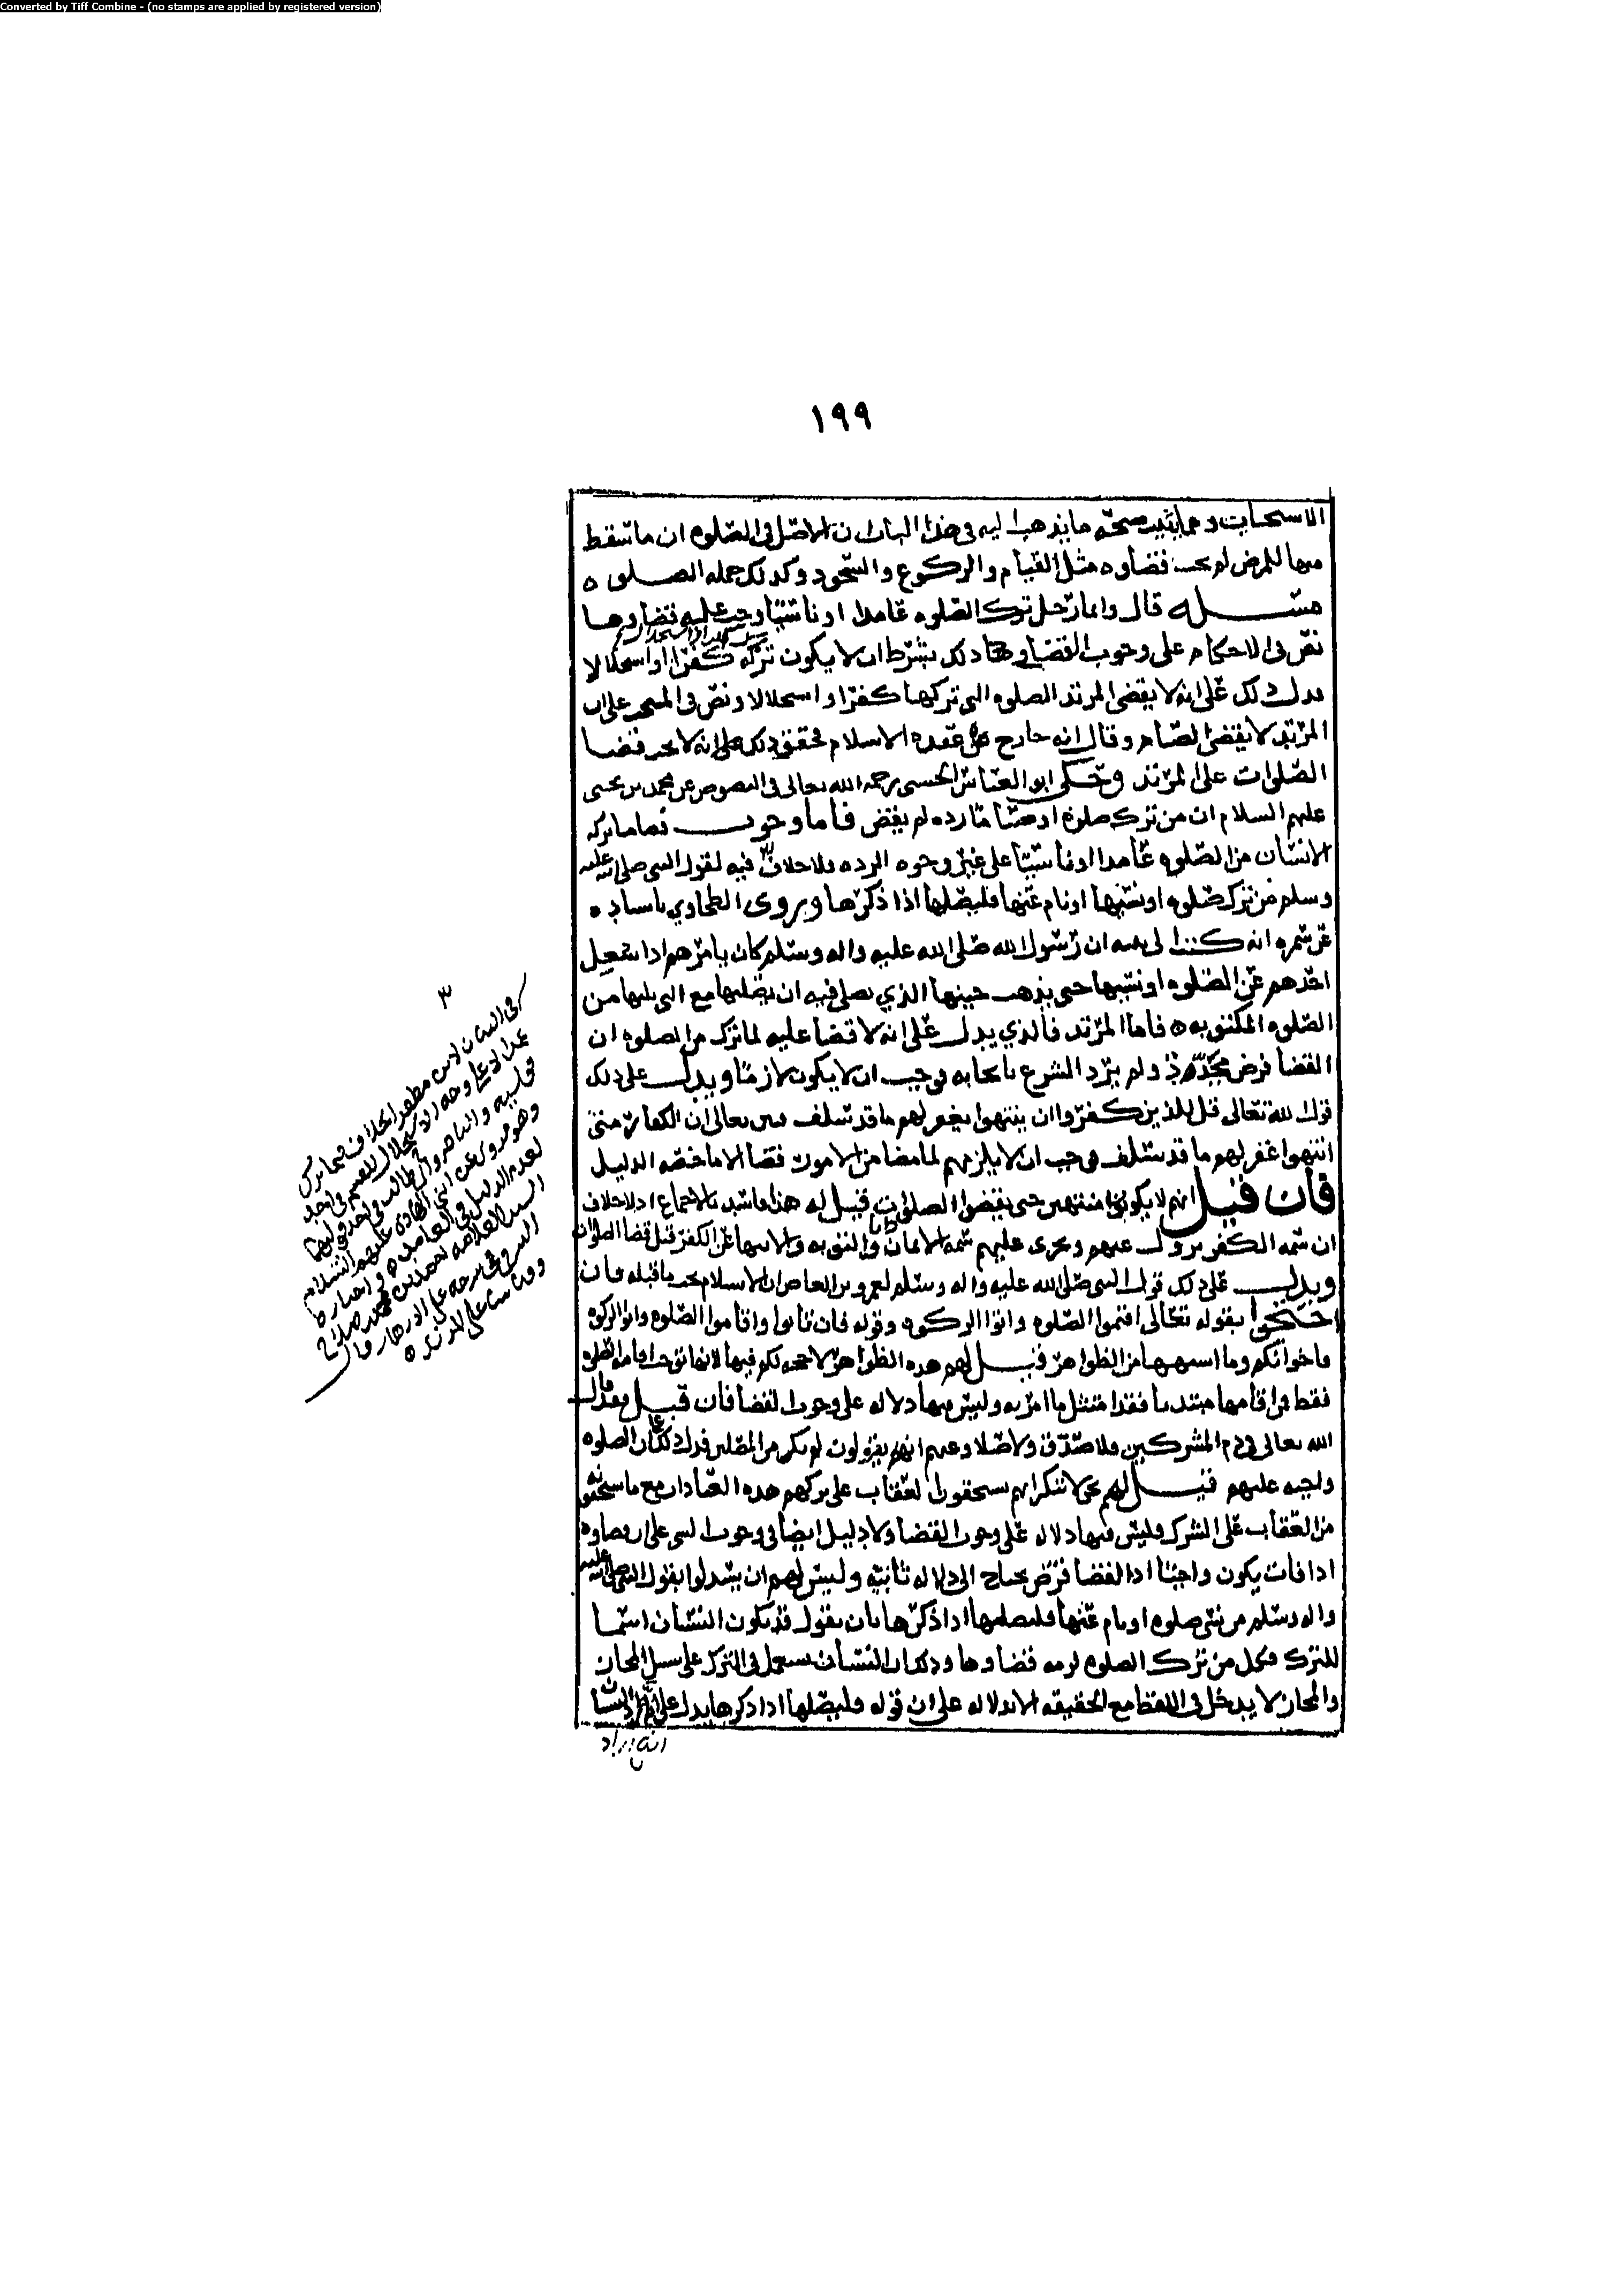 Converted by Tiff Combine - (no stamps are applied by registered version)
١٩٩
الاستحباب ومما يثبت صحة ما يذهب اليه في هذا الباب ان الاصل في الصلوه ان ما سقط
منها للمرض لم يجب قضاوه مثل القيام والركوع والسجود وكذلك جمله الصلوه
مسئله قال وايما رجل ترك الصلوه عامدا او ناسيا وجب عليه قضاوها
نص في الاحكام على وجوب القضا وهذا ذلك بشرط ان لا يكون تركه كفرا او استحلالا
يدل ذلك على انه لا يقضي المرتد الصلوه التي تركها كفرا واستحلالا ونص في المنتخب على ان
المرتد لا يقضي الصيام وقال انه خارج عن عقده الاسلام فحقق ذلك على انه لا يجب قضا
الصلوات على المرتد وحكى ابو العباس الحسني رحمه الله تعالى في النصوص عن محمد بن يحيى
عليهم السلام ان من ترك صلوه او صياما رده لم يقض فاما وجوب قضا ما تركه
الانسان من الصلوه عامدا او ناسيا على غير وجوه الرده فلا خلاف فيه لقول النبي صلى الله عليه
وسلم من ترك صلوه او نسيها او نام عنها فليصلها اذا ذكرها ويروى الطحاوي باسناده
عن سمره انه كتب الى بنيه ان رسول الله صلى الله عليه واله وسلم كان يامرهم اذا شغل
احدهم عن الصلوه او نسيها حتى يذهب حينها الذي يصلى فيه ان يصليها مع التي يليها من
الصلوه المكتوبه فاما المرتد فالذي يدل على انه لا قضا عليه لما ترك من الصلوه ان
القضا فرض مجدد ولم يرد الشرع بايجابه فوجب ان لا يكون لازما ويدل على ذلك
قول الله تعالى قل للذين كفروا ان ينتهوا يغفر لهم ما قد سلف فبين تعالى ان الكفار متى
انتهوا غفر لهم ما قد سلف فوجب ان لا يلزمهم لما مضا من الامور قضا الا ما خصه الدليل
فان قيل انهم لا يكونون منتهين حتى يقضوا الصلوات قيل له هذا فاسد بالاجماع اذ لا خلاف
ان سمه الكفر تزول عنهم وتجري عليهم سمه الايمان والتوبه والانتها عن الكفر قبل قضا الصلوات
ويدل على ذلك قول النبي صلى الله عليه واله وسلم لعمرو بن العاص ان الاسلام يجب ما قبله فان
احتجوا بقوله تعالى اقيموا الصلوه واتوا الزكوه وقوله فان تابوا واقاموا الصلوه واتوا الزكوه
فاخوانكم وما اشبهها من الظواهر قيل لهم هذه الظواهر لا حجه لكم فيها لانها توجب اقامه الصلوه
فقط ومن اقامها مبتديا فقد امتثل ما امر به وليس فيها دلاله على وجوب القضا فان قيل فقد قال
الله تعالى في ذم المشركين فلا صدق ولا صلا وعنهم انهم يقولون لم نك من المصلين فدل ذلك على ان الصلوه
واجبه عليهم قيل لهم نحن لا ننكر انهم يستحقون العقاب على تركهم هذه العبادات مع ما يستحقونه
من العقاب على الشرك وليس فيها دلاله على وجوب القضا ولا دليل ايضا في وجوب الشي على ان قضاوه
اذا فات يكون واجبا اذ القضا فرض يحتاج الى دلاله ثانيه وليس لهم ان يستدلوا بقول النبي صلى الله عليه
واله وسلم من نسي صلوه او نام عنها فليصلها اذا ذكرها بان يقول قد يكون النسيان اسما
للترك فكل من ترك الصلوه لزمه قضاوها وذلك ان النسيان يستعمل في الترك على سبيل المجاز
والمجاز لا يدخل في اللفظ مع الحقيقه الا بدلاله على ان قوله فليصلها اذا ذكرها يدل على النسيان
انه اراد
٣
في البيان لابن مظفر الخلاف فيما ترك
عمدا لا على وجه الاستحلال للقسم في احد
قوليه والناصر وابي طالب في احد قوليهما
وهو مروي عن ابني الهادي عليهم السلام
لعدم الدليل في العامد
السيد العلامه احمد بن محمد صلاح
الشرفي في شرحه على الازهار